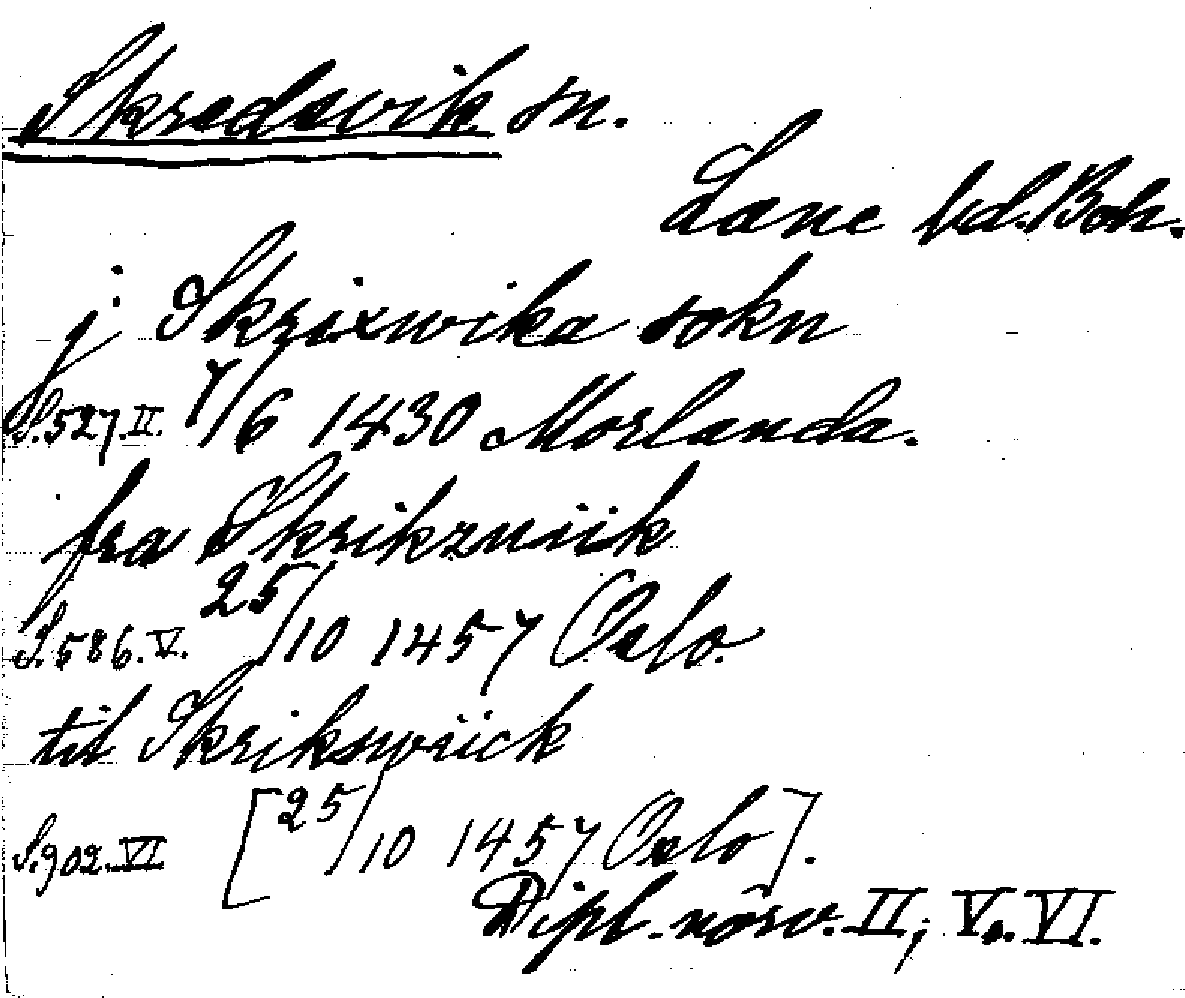 Skredsvik sn.
Lane hd. Boh.
j Skrixwika sokn
S.527.II. 7/6 1430 Morlanda.
fra Skrikzuiik
S.586.V. 25/10 1457 Oslo.
til Skrikswiick
S.902.VI [25/10 1457 Oslo].
Dipl. norv. II, V. VI.